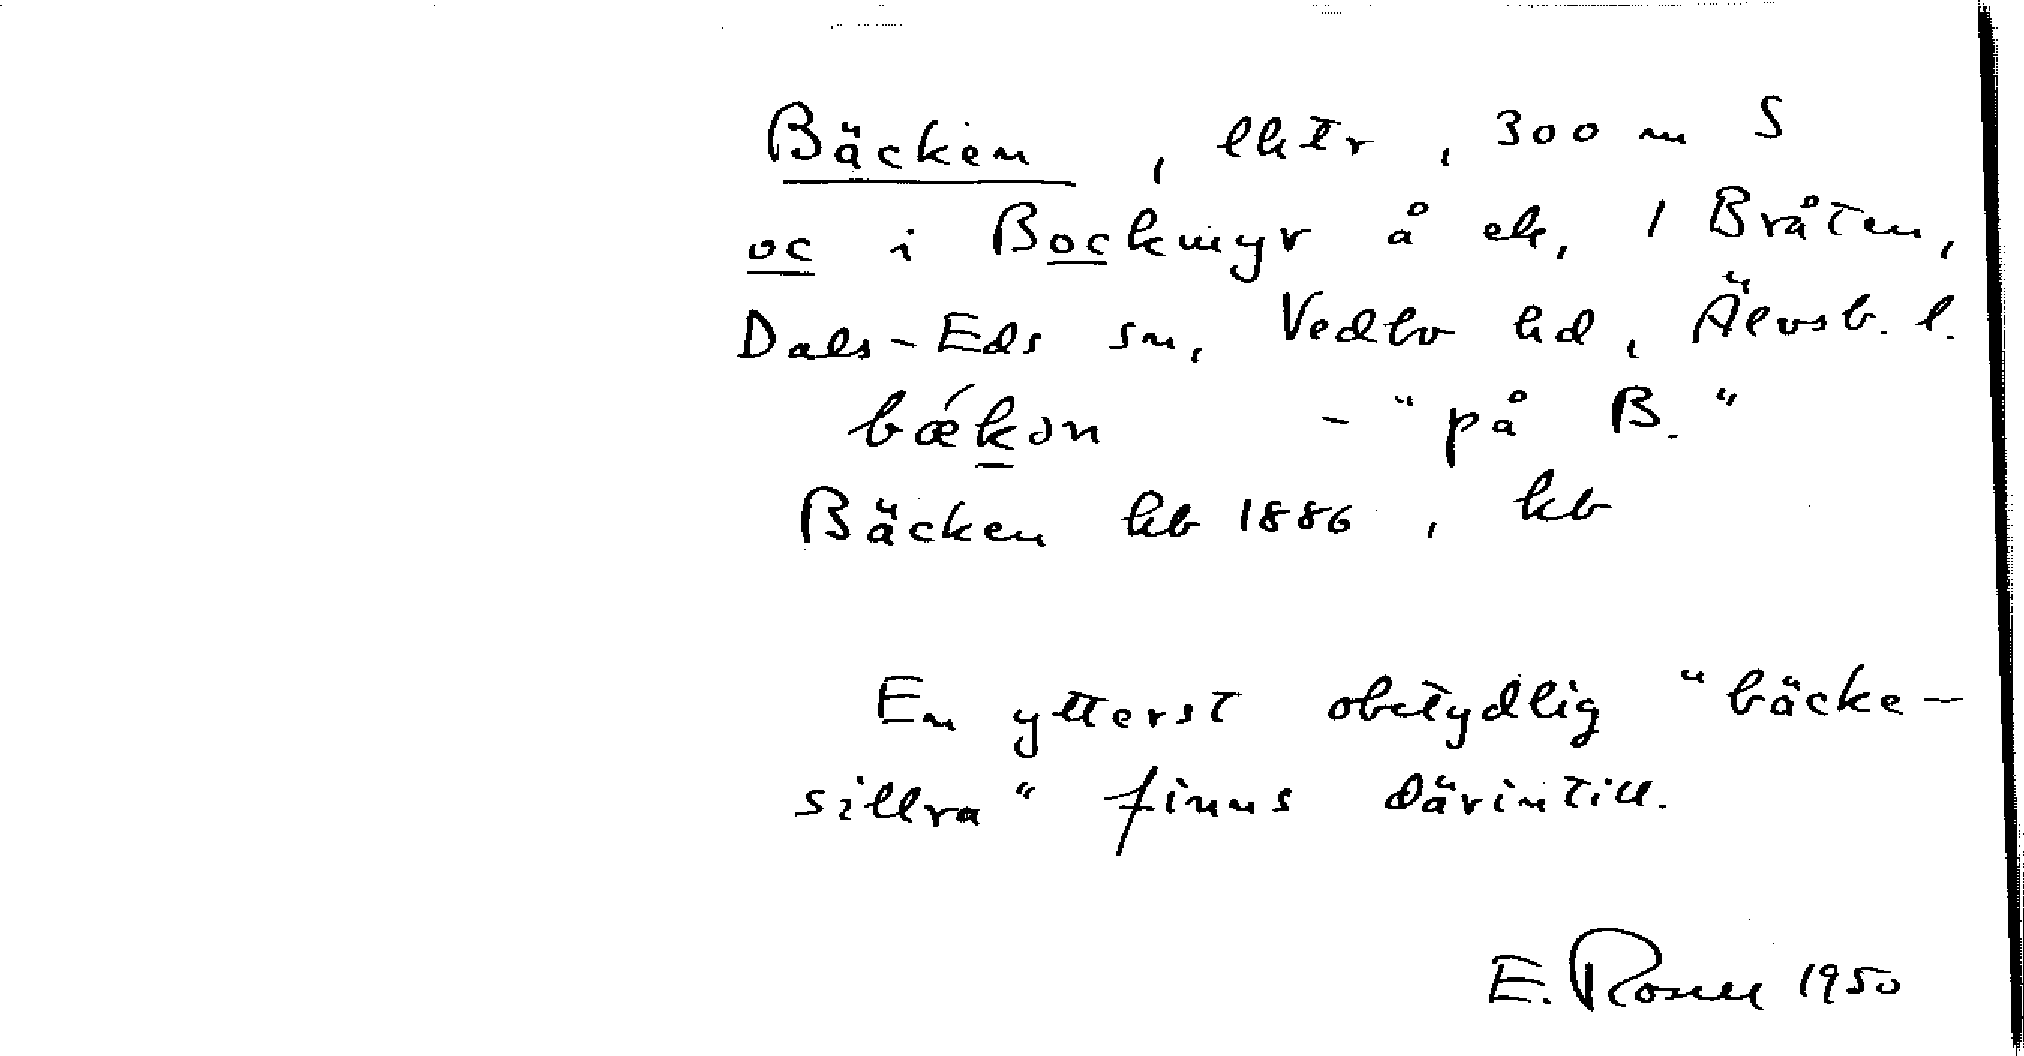 Bäcken, lhtr, 300 m S
oc i Bockmyr å ek, 1 Bråten,
Dals-Eds sn, Vedbo hd, Älvsb. l.
bǽkən - "på B."
Bäcken kb 1886, kb
En ytterst obetydlig "bäcke-
sillra" finns därintill.
E. Rosell 1950